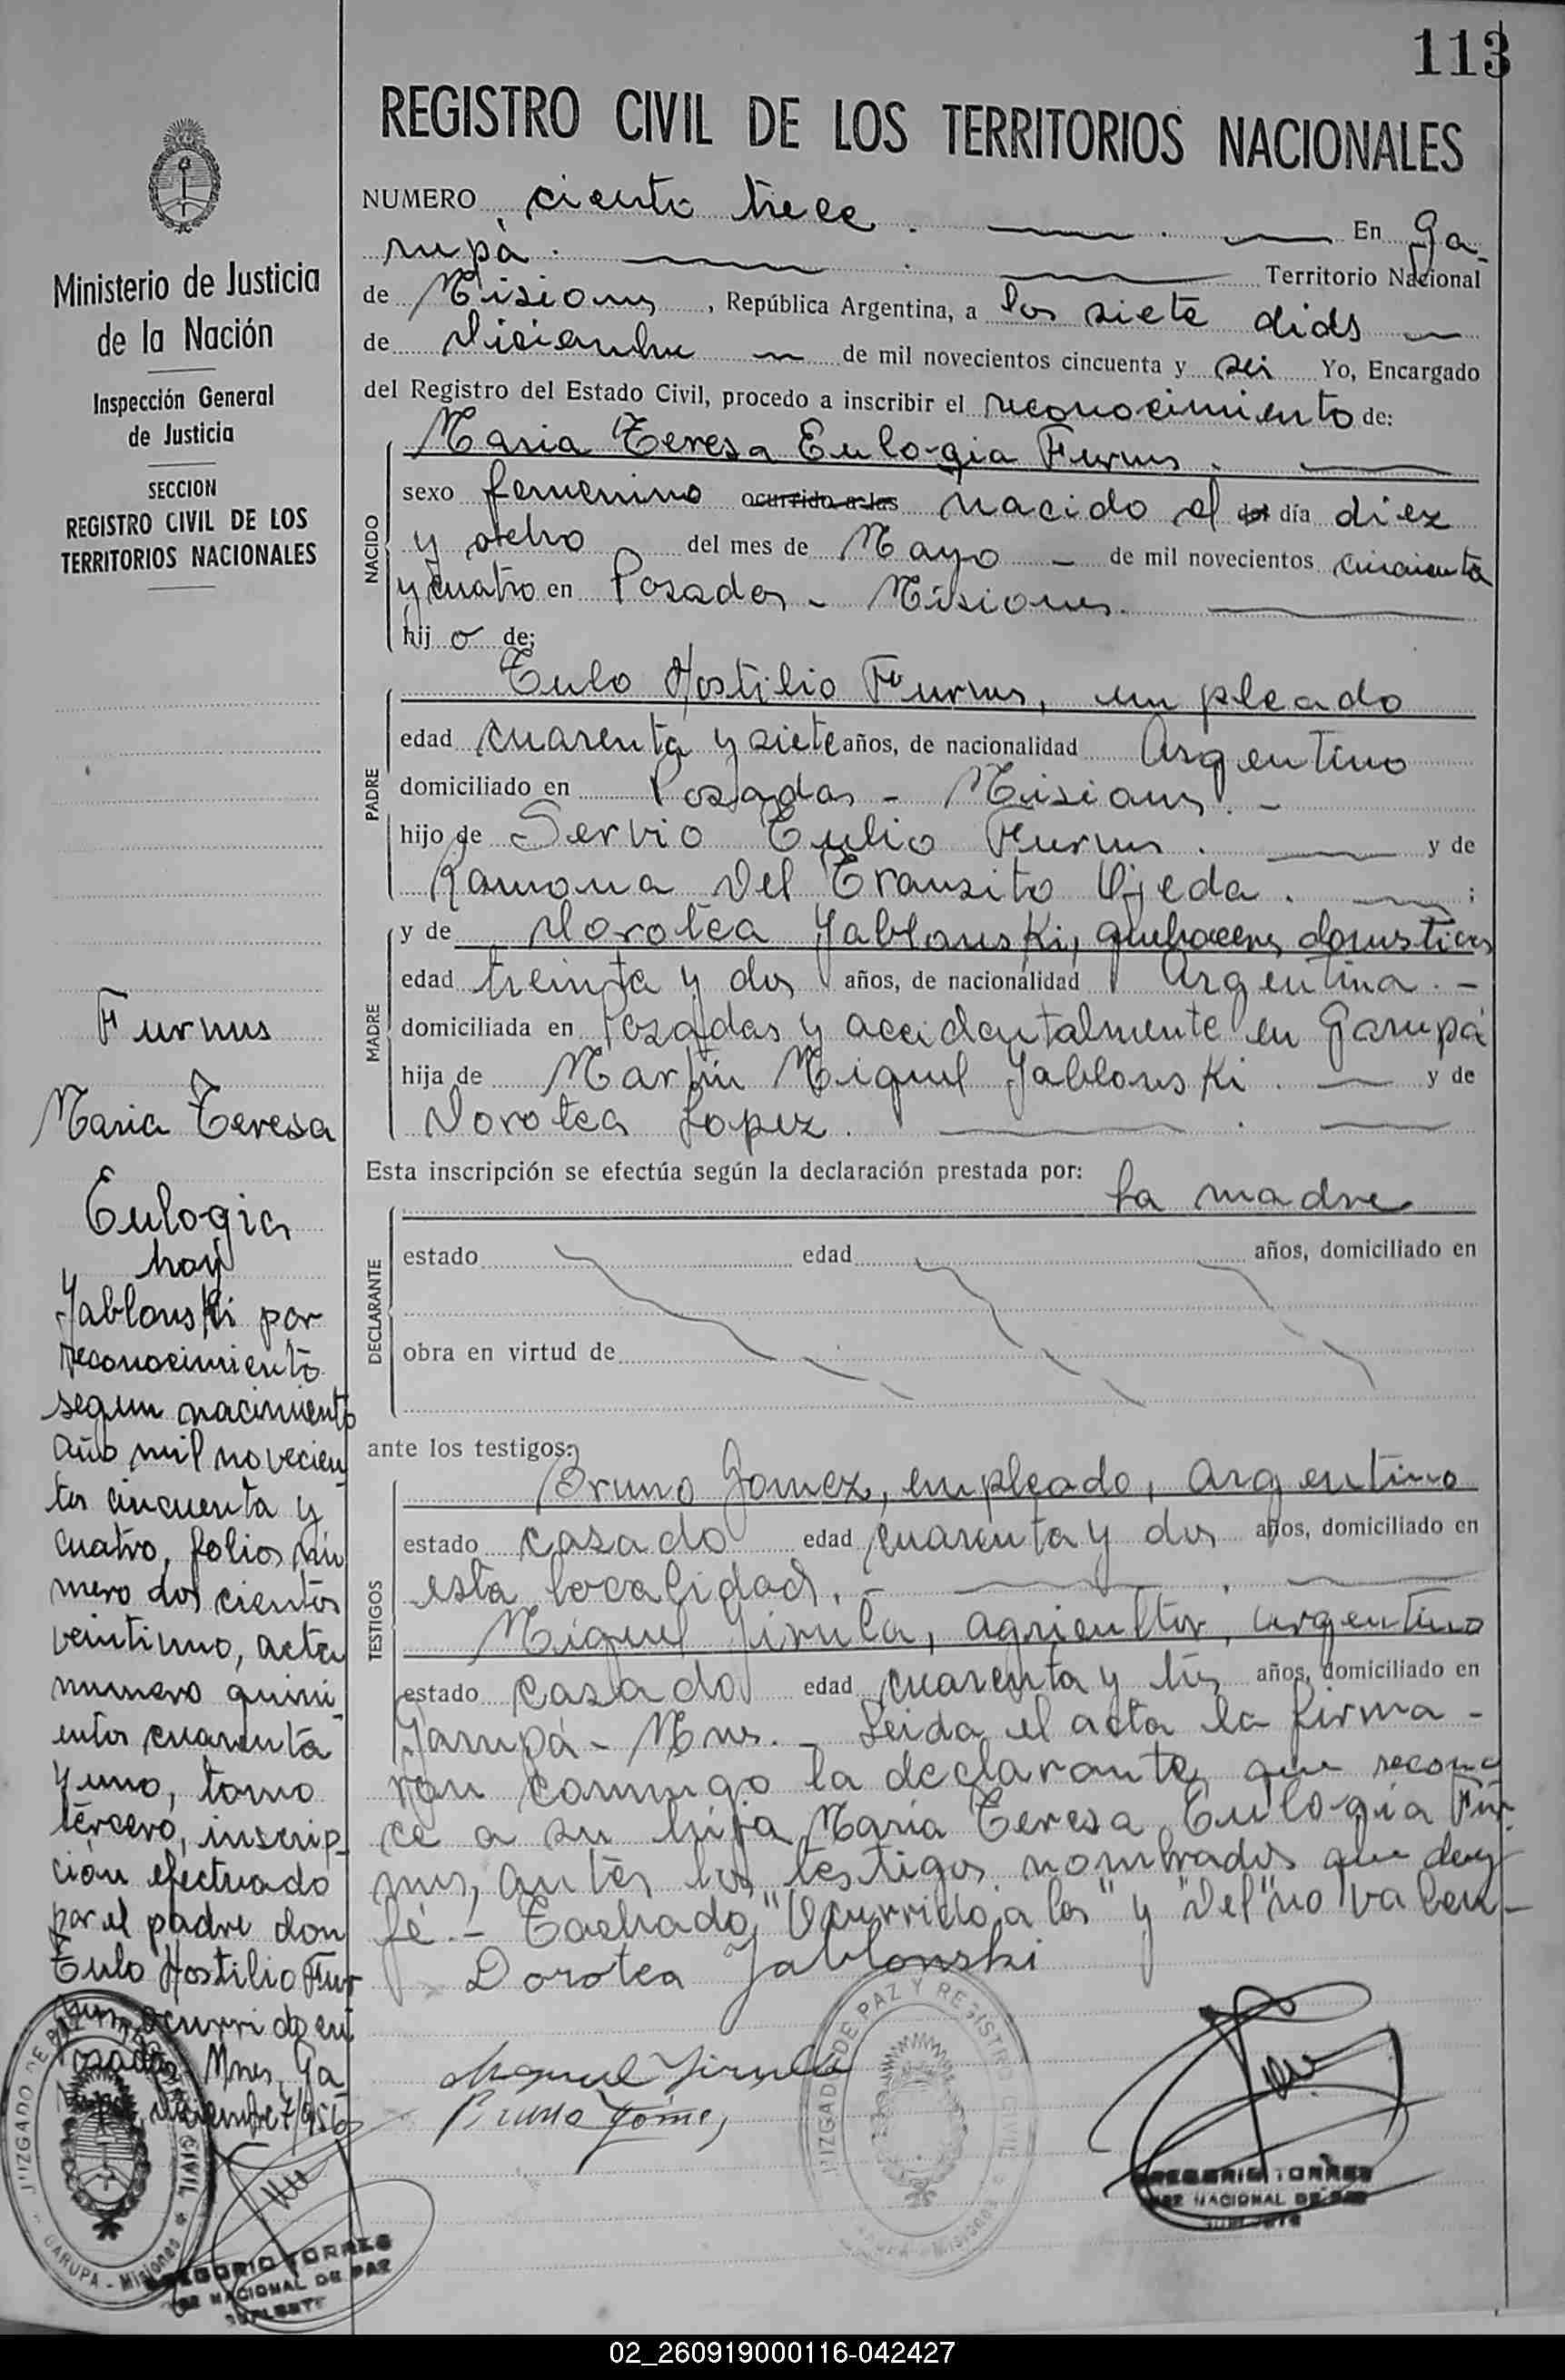 113
REGISTRO CIVIL DE LOS TERRITORIOS NACIONALES
NUMERO ciento trece. En Ga-
rupá. Territorio Nacional
de Misiones, República Argentina, a los siete dias
de Diciembre de mil novecientos cincuenta y seis Yo, Encargado
del Registro del Estado Civil, procedo a inscribir el reconocimiento de:
NACIDO
Maria Teresa Eulogia Furnus.
sexo femenino ocurrido a las nacido el del día diez
y ocho del mes de Mayo - de mil novecientos cincuenta
y cuatro en Posadas - Misiones.
hij o de;
PADRE
Tulo Hostilio Furnus, empleado
edad cuarenta y siete años, de nacionalidad Argentino
domiciliado en Posadas - Misiones. -
hijo de Servio Tulio Furnus. y de
Ramona Del Transito Ojeda. ;
MADRE
y de Dorotea Jablonski, quehaceres domesticos
edad treinta y dos años, de nacionalidad Argentina. -
domiciliada en Posadas y accidentalmente en Garupá
hija de Martin Miguel Jablonski. y de
Dorotea Lopez.
Esta inscripción se efectúa según la declaración prestada por:
la madre
DECLARANTE
estado edad años, domiciliado en
obra en virtud de
ante los testigos:
TESTIGOS
Bruno Gomez, empleado, argentino
estado casado edad cuarenta y dos años, domiciliado en
esta localidad. -
Miguel Jirula, agricultor, argentino
estado casado edad cuarenta y tres años, domiciliado en
Garupá - Mnes. - Leida el acta la firma-
ron conmigo la declarante que recono
ce a su hija Maria Teresa Eulogia Fur-
nus, antes los testigos nombrados que doy
fé. - Tachado, "Ocurrido a las" y "Del" no valen-
Dorotea Jablonski
Miguel Jirula
Bruno Gómez
JUZGADO DE PAZ Y REGISTRO CIVIL
GREGORIO TORRES
JUEZ NACIONAL DE PAZ
SUPLENTE
Ministerio de Justicia
de la Nación
Inspección General
de Justicia
SECCION
REGISTRO CIVIL DE LOS
TERRITORIOS NACIONALES
Furnus
Maria Teresa
Eulogia
hoy
Jablonski por
reconocimiento
segun nacimiento
año mil novecien
tos cincuenta y
cuatro, folios nú
mero dos cientos
veintiuno, acta
numero quini-
entos cuarenta
y uno, tomo
tercero, inscrip-
ción efectuado
por el padre don
Tulo Hostilio Fur
nus, ocurrido en
Posadas, Mnes, Ga-
rupá, diciembre 7/956
JUZGADO DE PAZ Y REGISTRO CIVIL
GARUPA - Misiones
GREGORIO TORRES
JUEZ NACIONAL DE PAZ
SUPLENTE
02_260919000116-042427